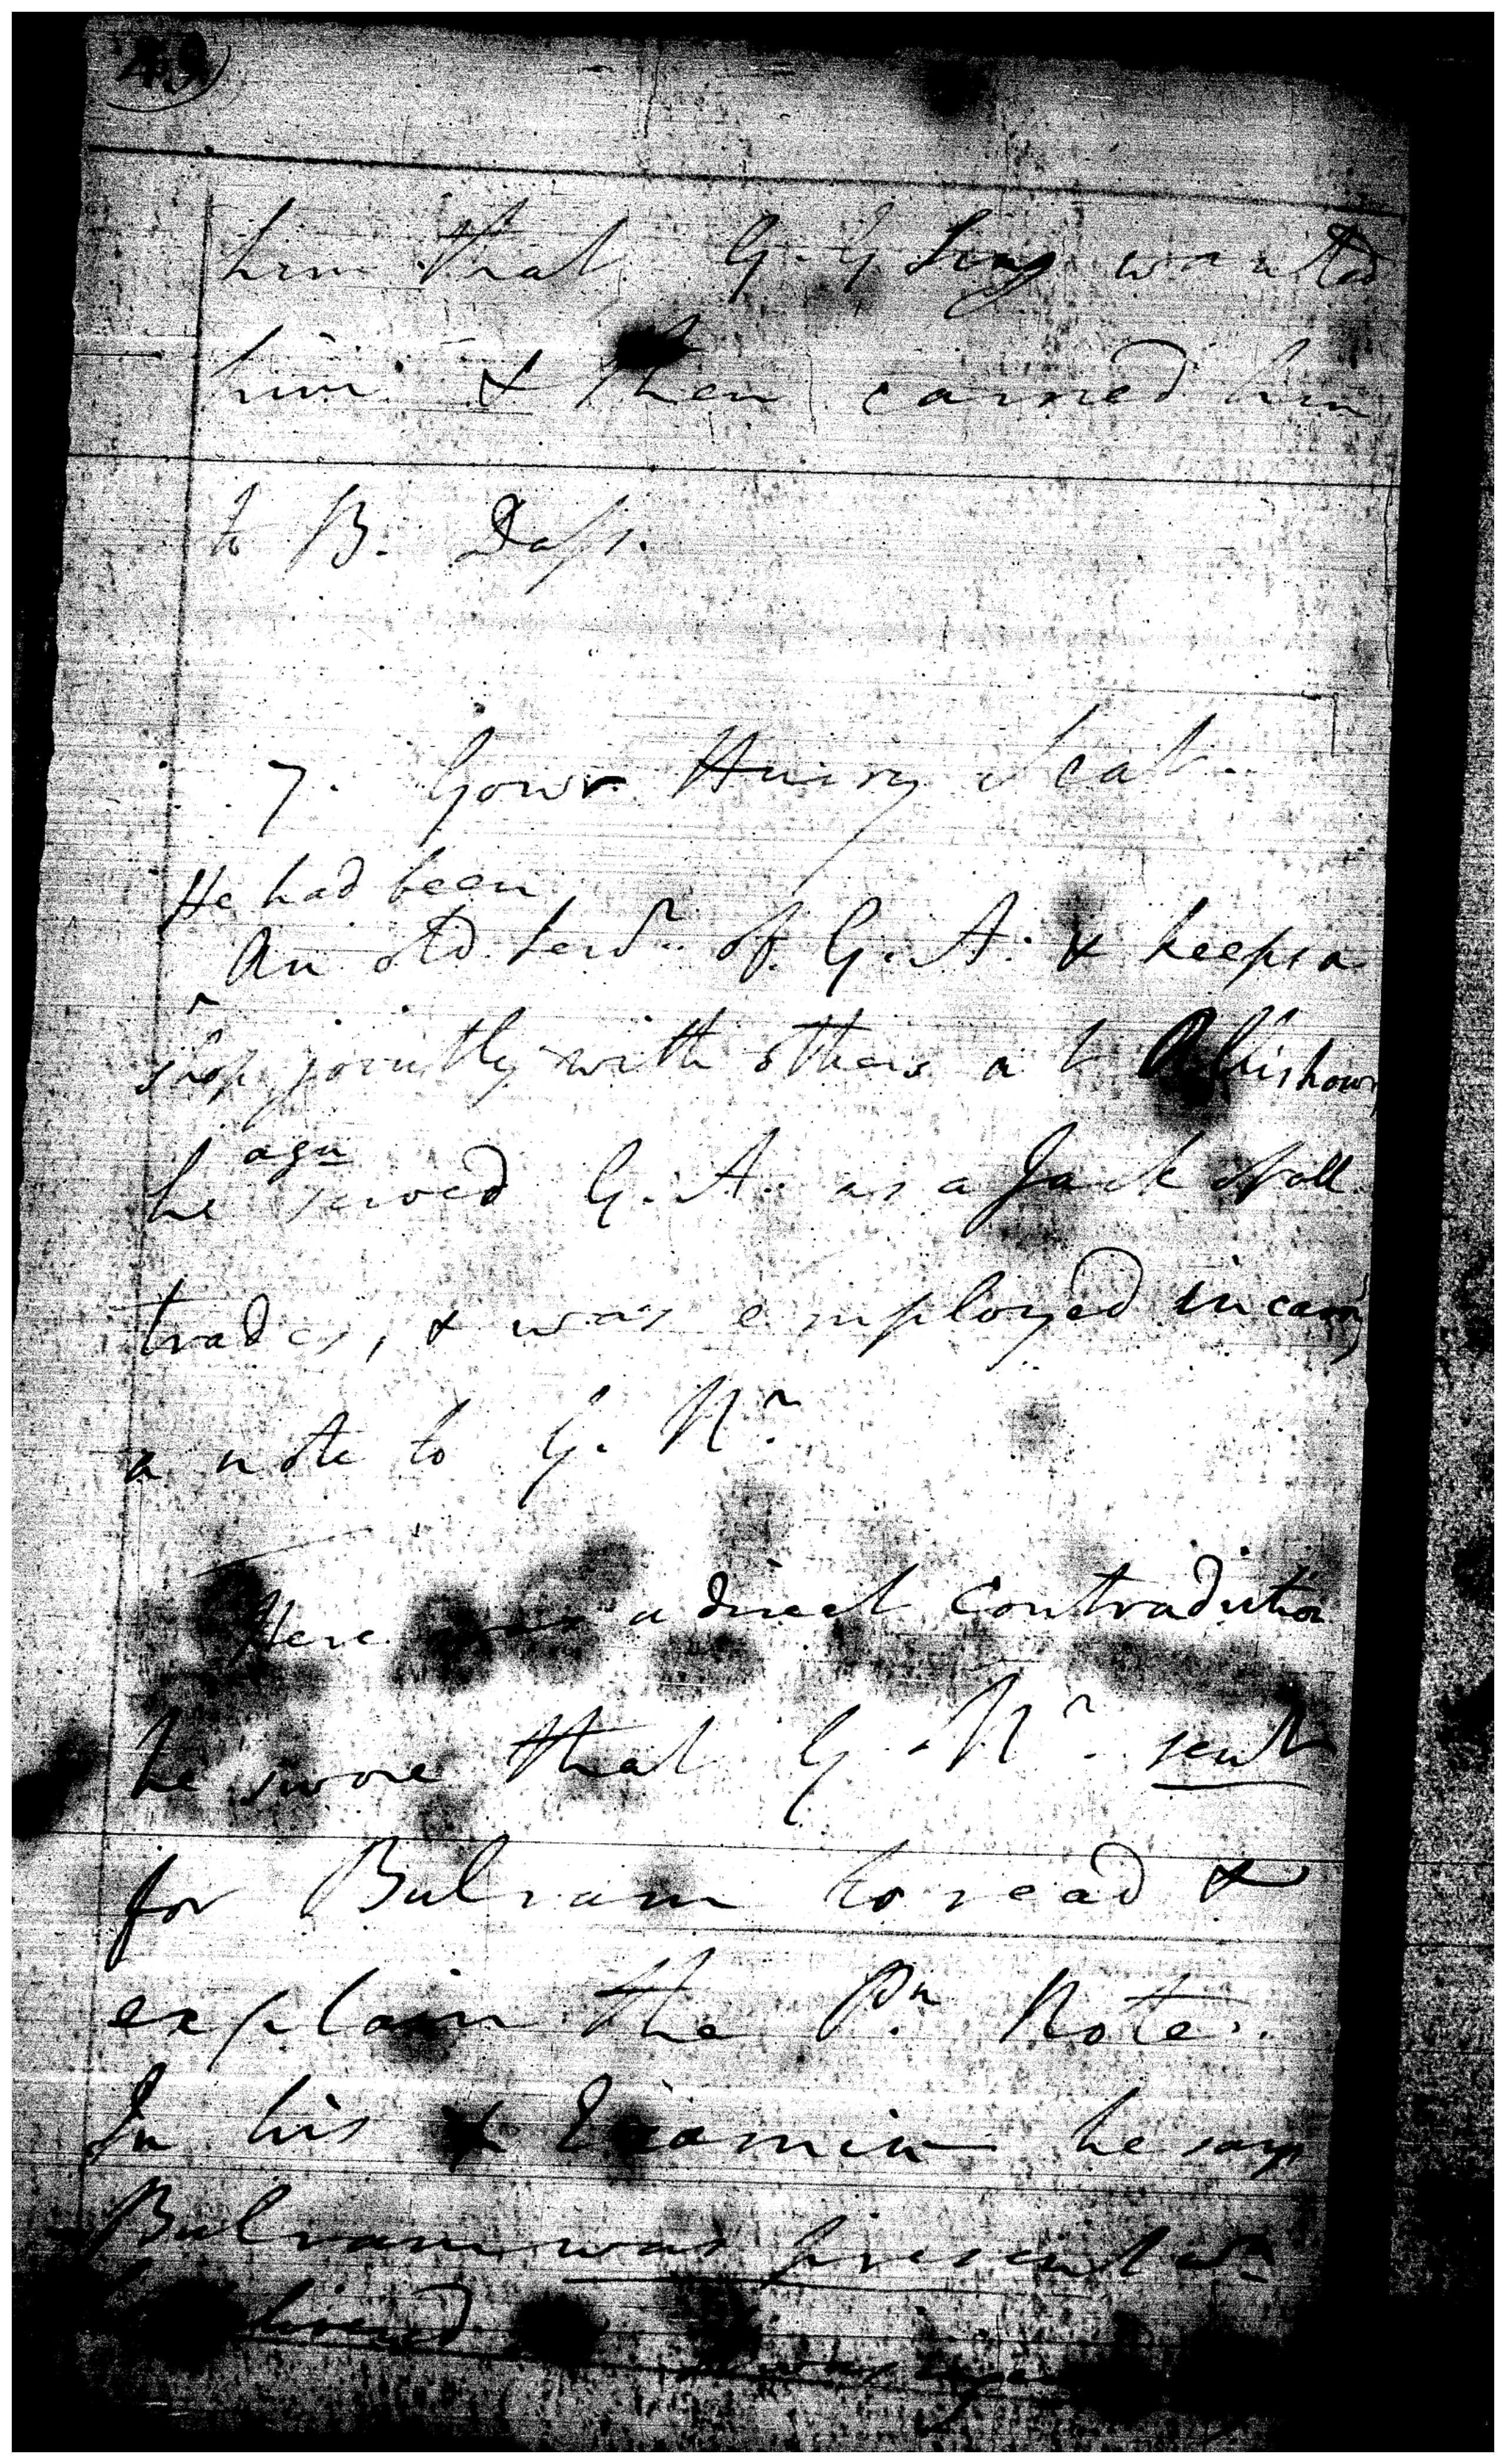 49
him that G. G Sing wanted
him & then carried him
to B. Dass.
7. Gowr Hurry
He had been
An old Serv.t of G. A. & keeps a
shop jointly with others at
he agn served G. A. as a Jack of all
trades, & was employed in carry
a note to G. N.r
Here was a direct Contradiction
he swore that G. N.r sent
for Bulram to read &
explain the P.n Note.
In his X Examin he says
Bulram was present wn